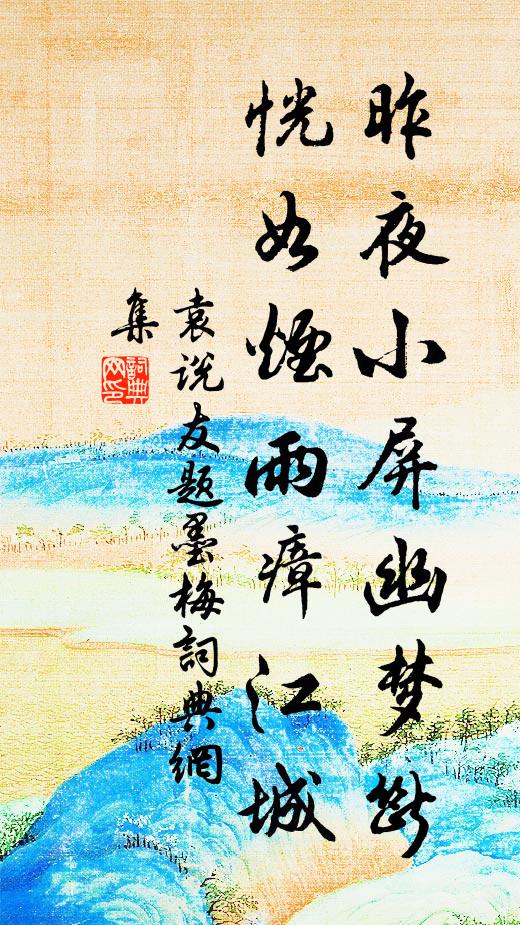 昨夜小屏幽梦断
恍如烟雨瘴江城
袁说友题墨梅詞典網
集
詞典网印